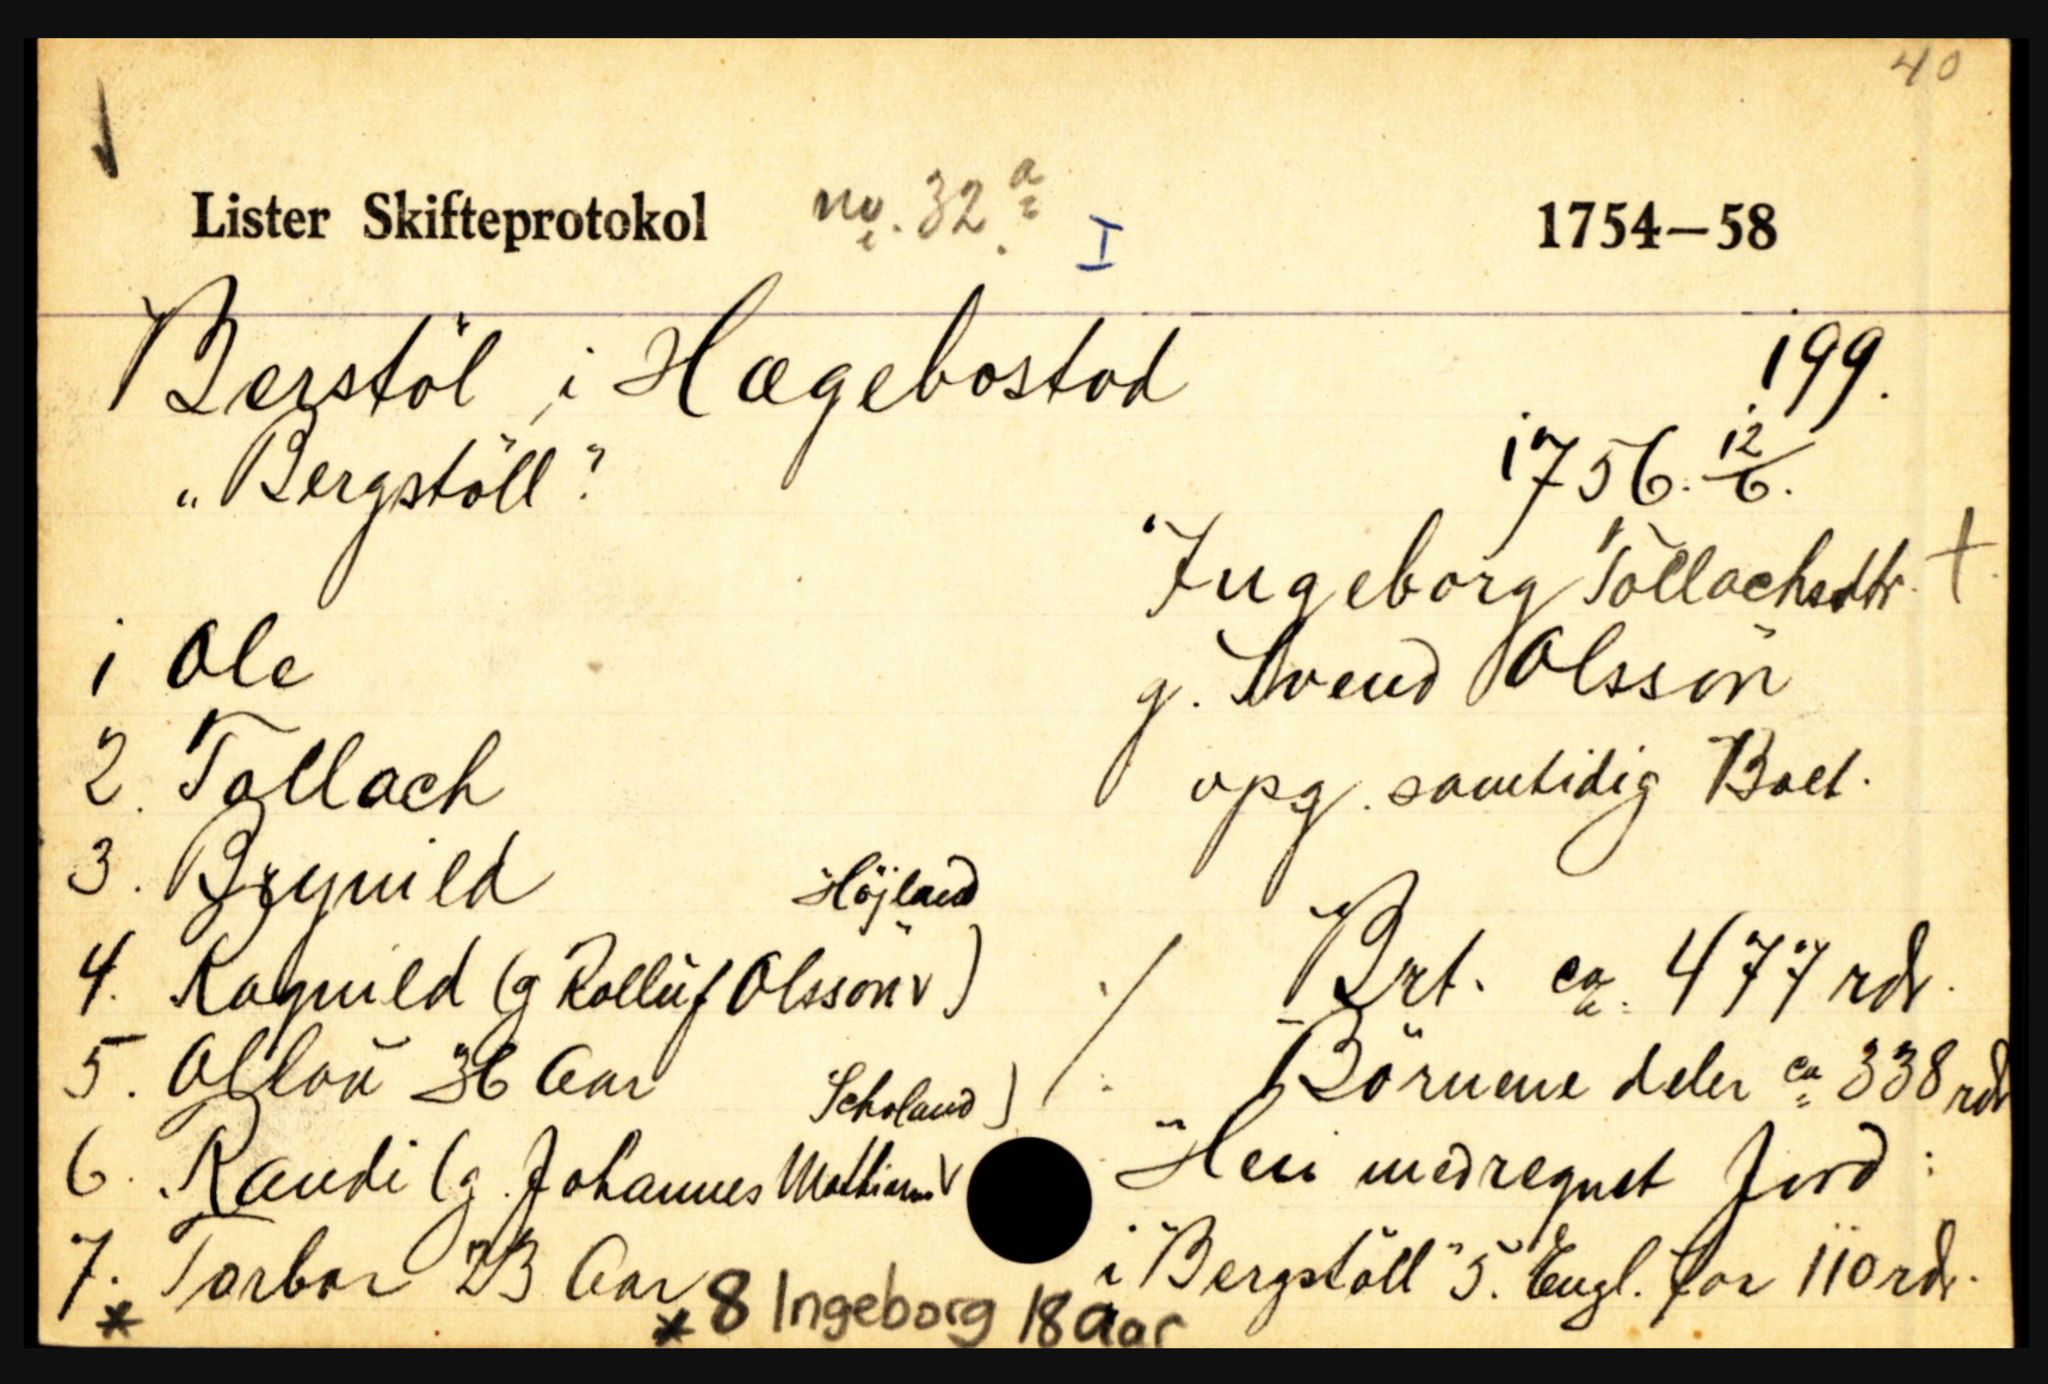 40
Lister Skifteprotokol no. 32a I 1754—58
Berstöl i Hægebostad 199.
„Bergstöll" 1756. 12/6.
Ingeborg Tollachsdtr. †
g. Svend Olssön
opg. samtidig Boet.
1 Ole
2. Tollach
3. Brynild
4. Ragnild (g Rolluf Olssön Höjland)
5. Ollou 36 Aar
6. Randi (g. Johannes Scholand)
7. Torbor 23 Aar
* * 8 Ingeborg 18 aar
Brt. ca. 477 rdr.
Börnene deler ca 338 rdr
Heri medregnet Jord:
i "Bergstöll" 5. Engl. for 110 rdr.